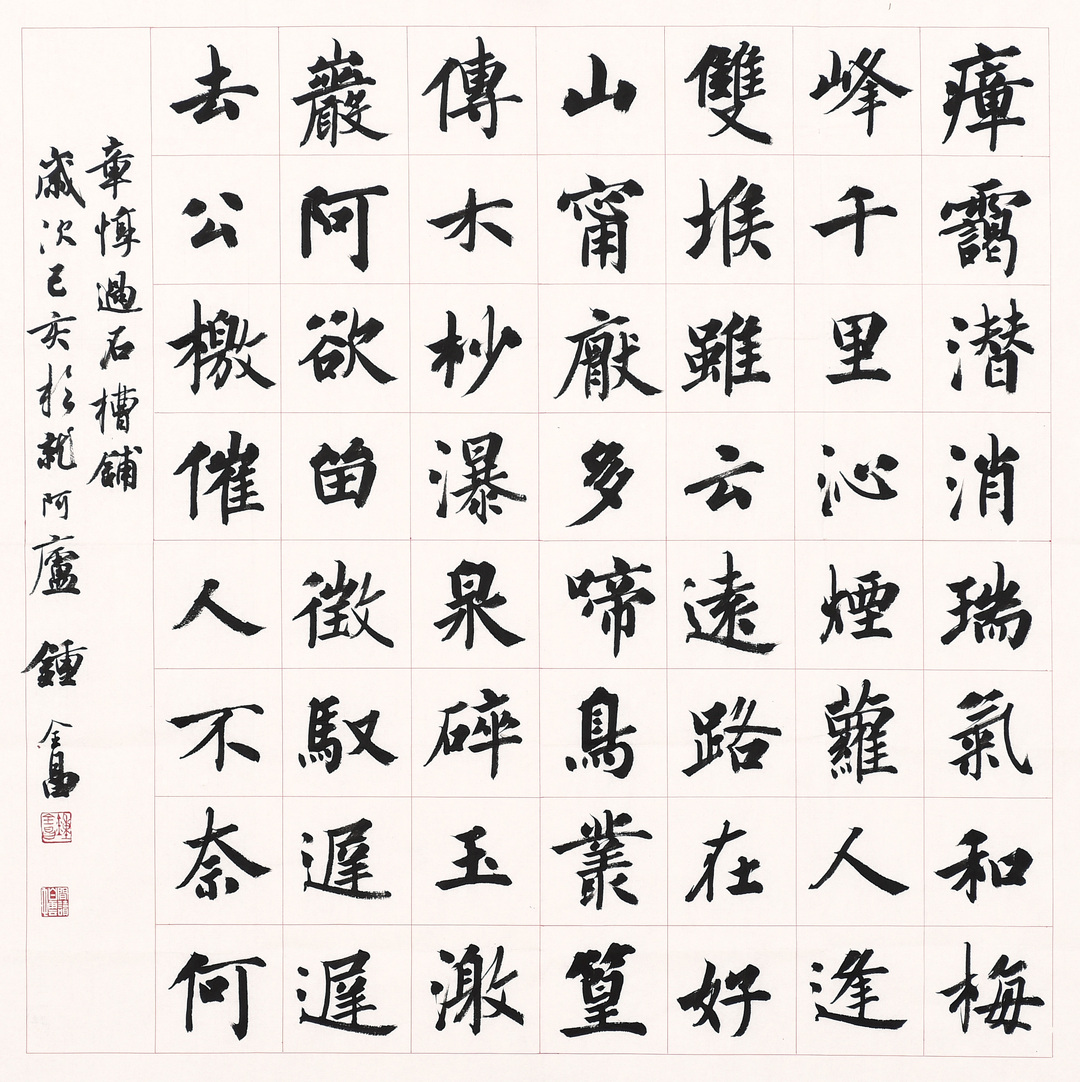 瘴靄潛消瑞氣和梅
峰千里沁煙蘿人逢
雙堠雖云遠路在好
山甯厭多啼鳥叢篁
傳木杪瀑泉碎玉激
巖阿欲留徵馭遲遲
去公檄催人不奈何
章惇過石槽鋪
歲次己亥於龍阿廬 鍾金昌